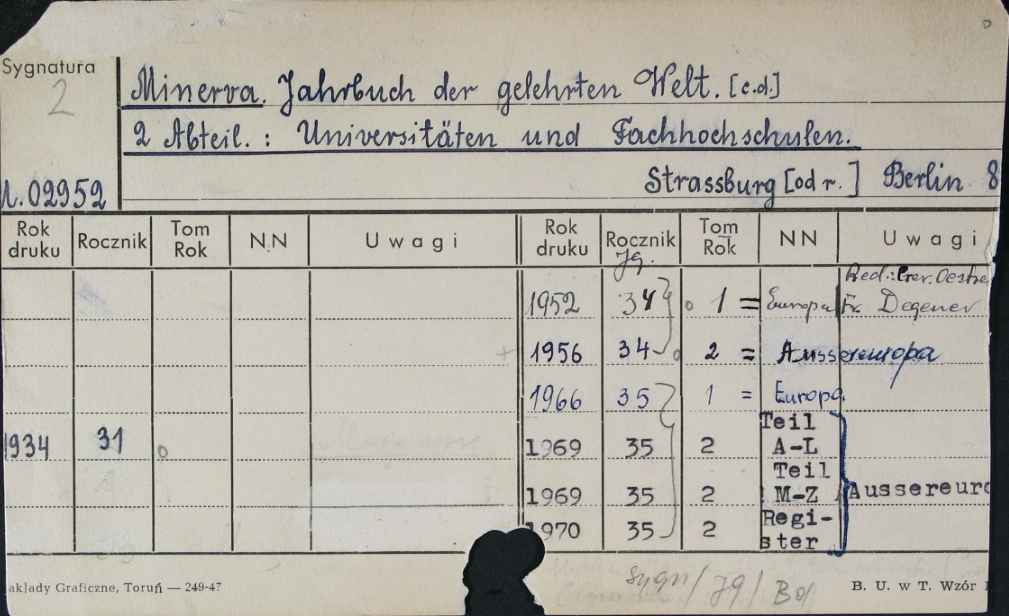 Sygnatura
2
Minerva. Jahrbuch der gelehrten Welt. [c.d.]
2 Abteil. : Universitäten und Fachhochschulen.
02952
Strassburg [od r. ] Berlin 8
Rok druku Rocznik Tom Rok NN Uwagi Rok druku Rocznik Tom Rok NN Uwagi
Jg.
1952 34 1 = Europa Fr. Degener
1956 34 2 = Aussereuropa
1966 35 1 = Europa
1934 31 1969 35 2 Teil A-L
1969 35 2 Teil M-Z Aussereuro
1970 35 2 Regi-
ster
akłady Graficzne, Toruń — 249-47
Sygn/Jg/Bd
B. U. w T. Wzór